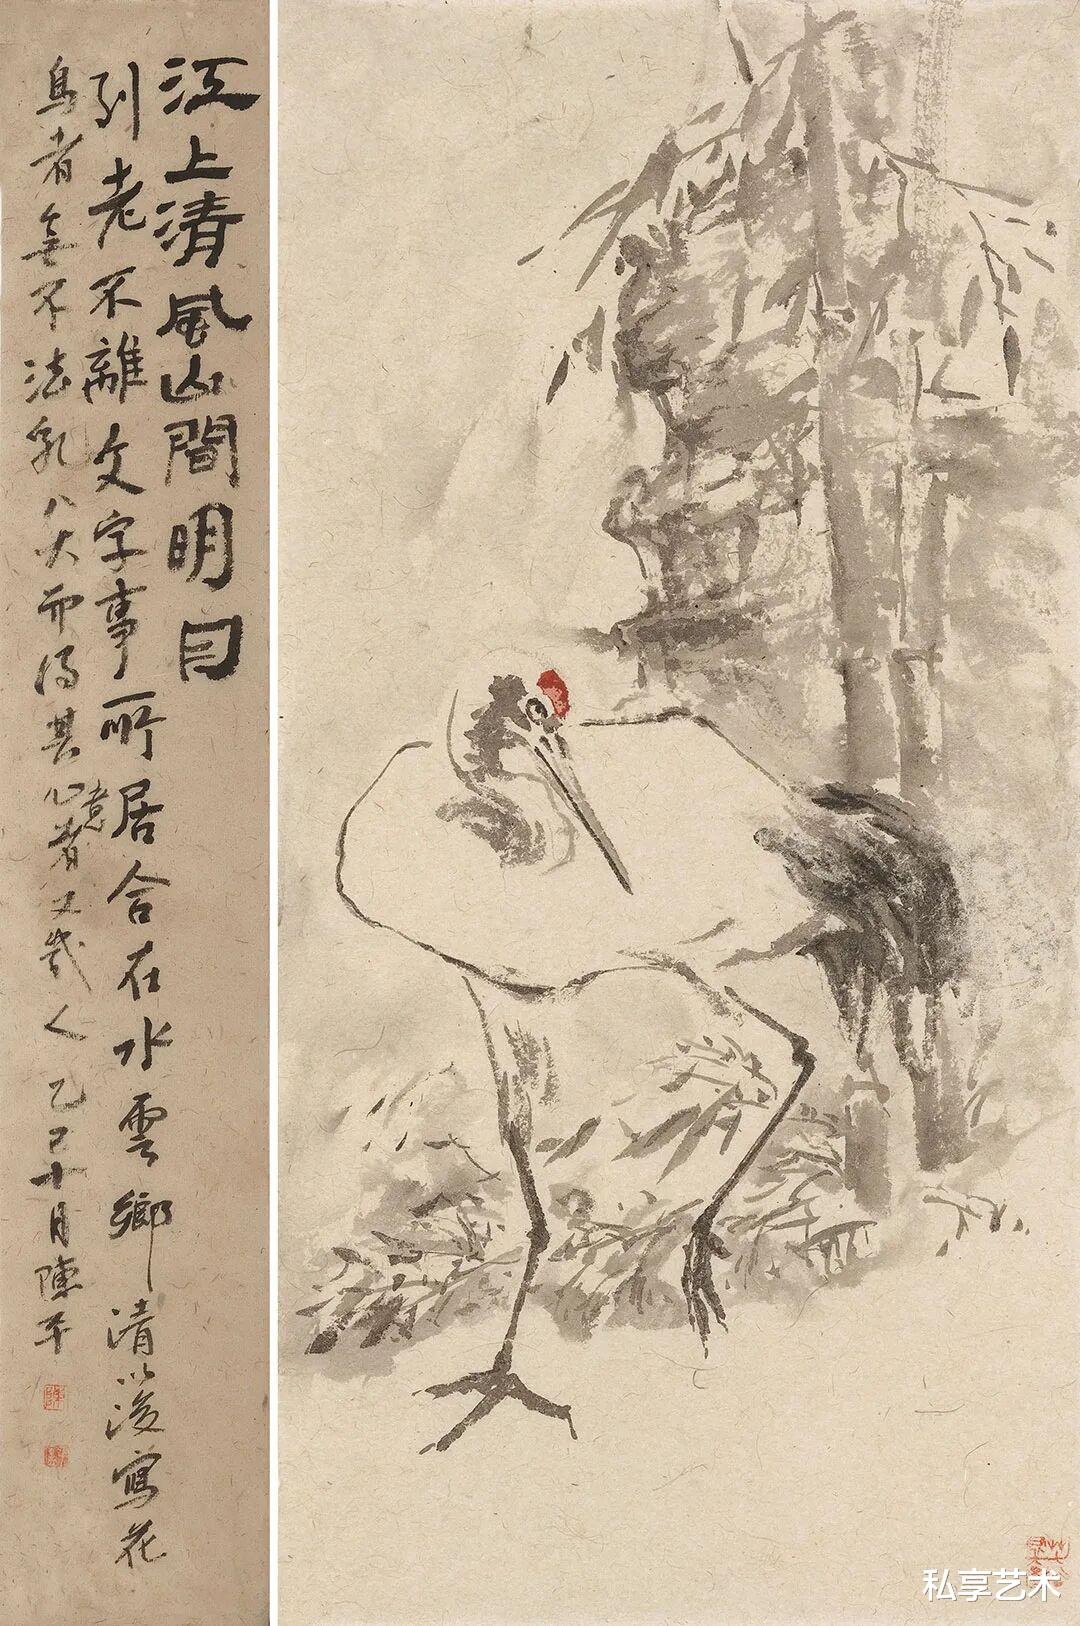 江上清風山間明月
到老不離文字事所居合在水雲鄉清以後寫花
鳥者無不法乳八大而得其心意者又幾人乙巳十月陳平
私享艺术